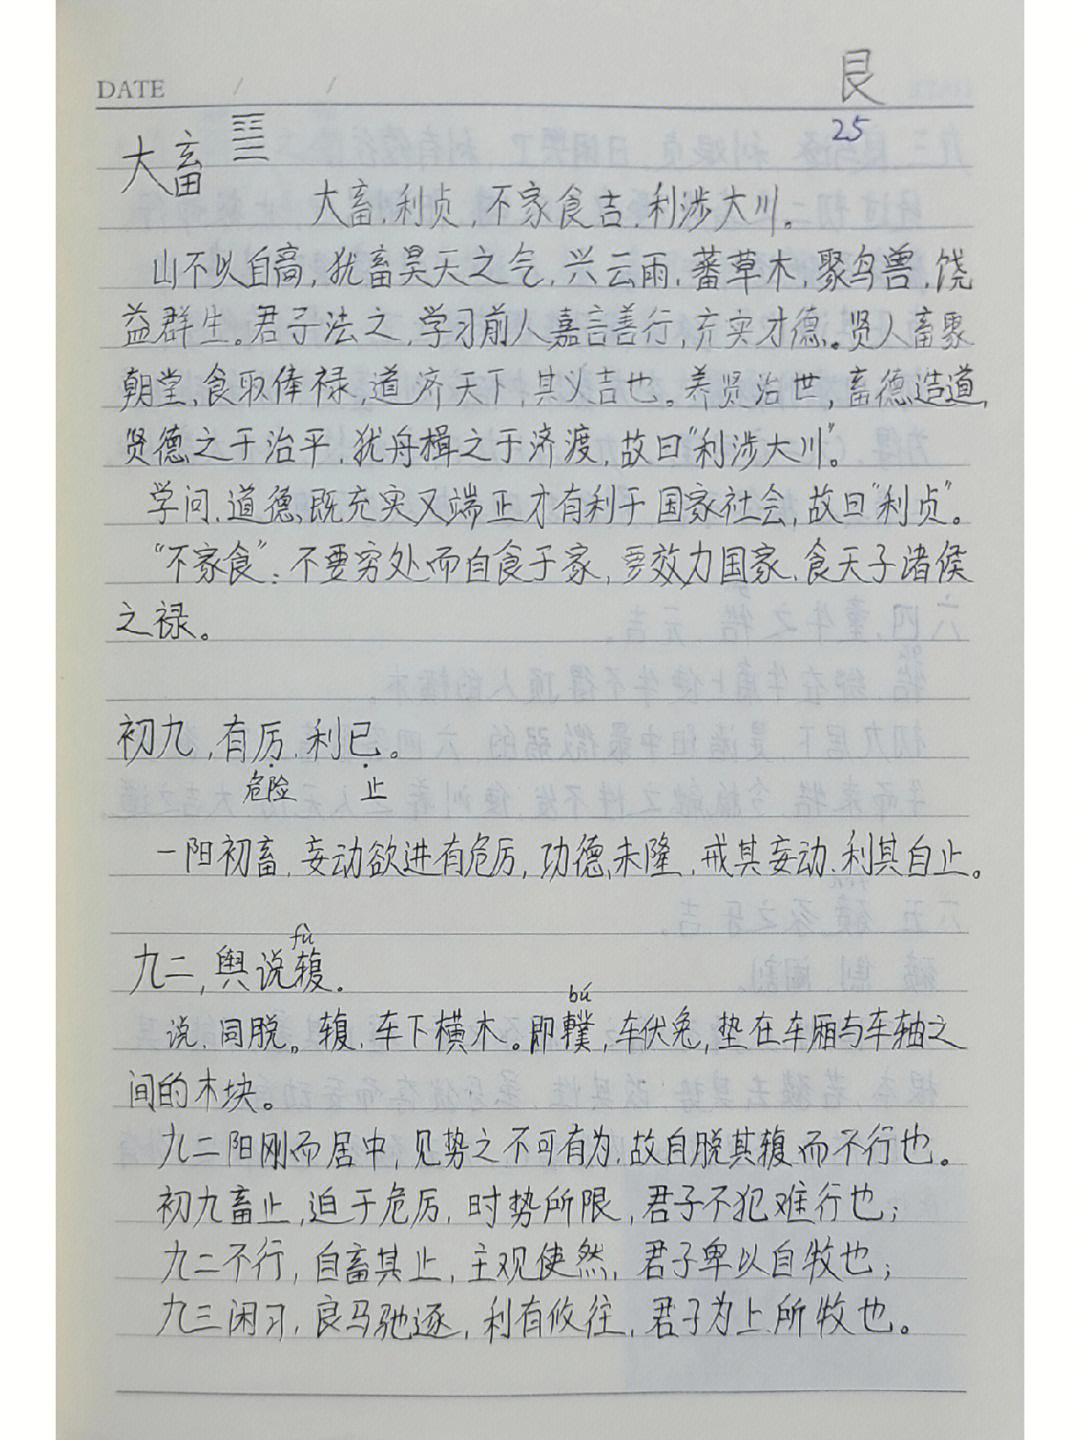 DATE / /
艮
25
大畜 ䷙
大畜,利贞,不家食吉,利涉大川。
山不以自高,犹畜昊天之气,兴云雨,蕃草木,聚鸟兽,饶
益群生。君子法之,学习前人嘉言善行,充实才德。贤人畜聚
朝堂,食取俸禄,道济天下,其义吉也。养贤治世,畜德造道,
贤德之于治平,犹舟楫之于济渡,故曰“利涉大川”。
学问、道德,既充实又端正才有利于国家社会,故曰“利贞”。
“不家食”:不要穷处而自食于家,要效力国家,食天子诸侯
之禄。
初九,有厉,利已。
危险 止
一阳初畜,妄动欲进有危厉,功德未隆,戒其妄动,利其自止。
fù
九二,舆说輹.
bú
说,同脱。輹,车下横木。即轐,车伏兔,垫在车厢与车轴之
间的木块。
九二阳刚而居中,见势之不可有为,故自脱其輹而不行也。
初九畜止,迫于危厉,时势所限,君子不犯难行也;
九二不行,自畜其止,主观使然,君子卑以自牧也;
九三闲习,良马驰逐,利有攸往,君子为上所牧也。